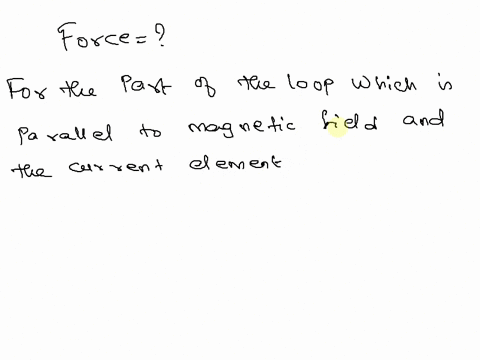 Force = ?
For the Part of the loop which is
Parallel to magnetic field and
the current element